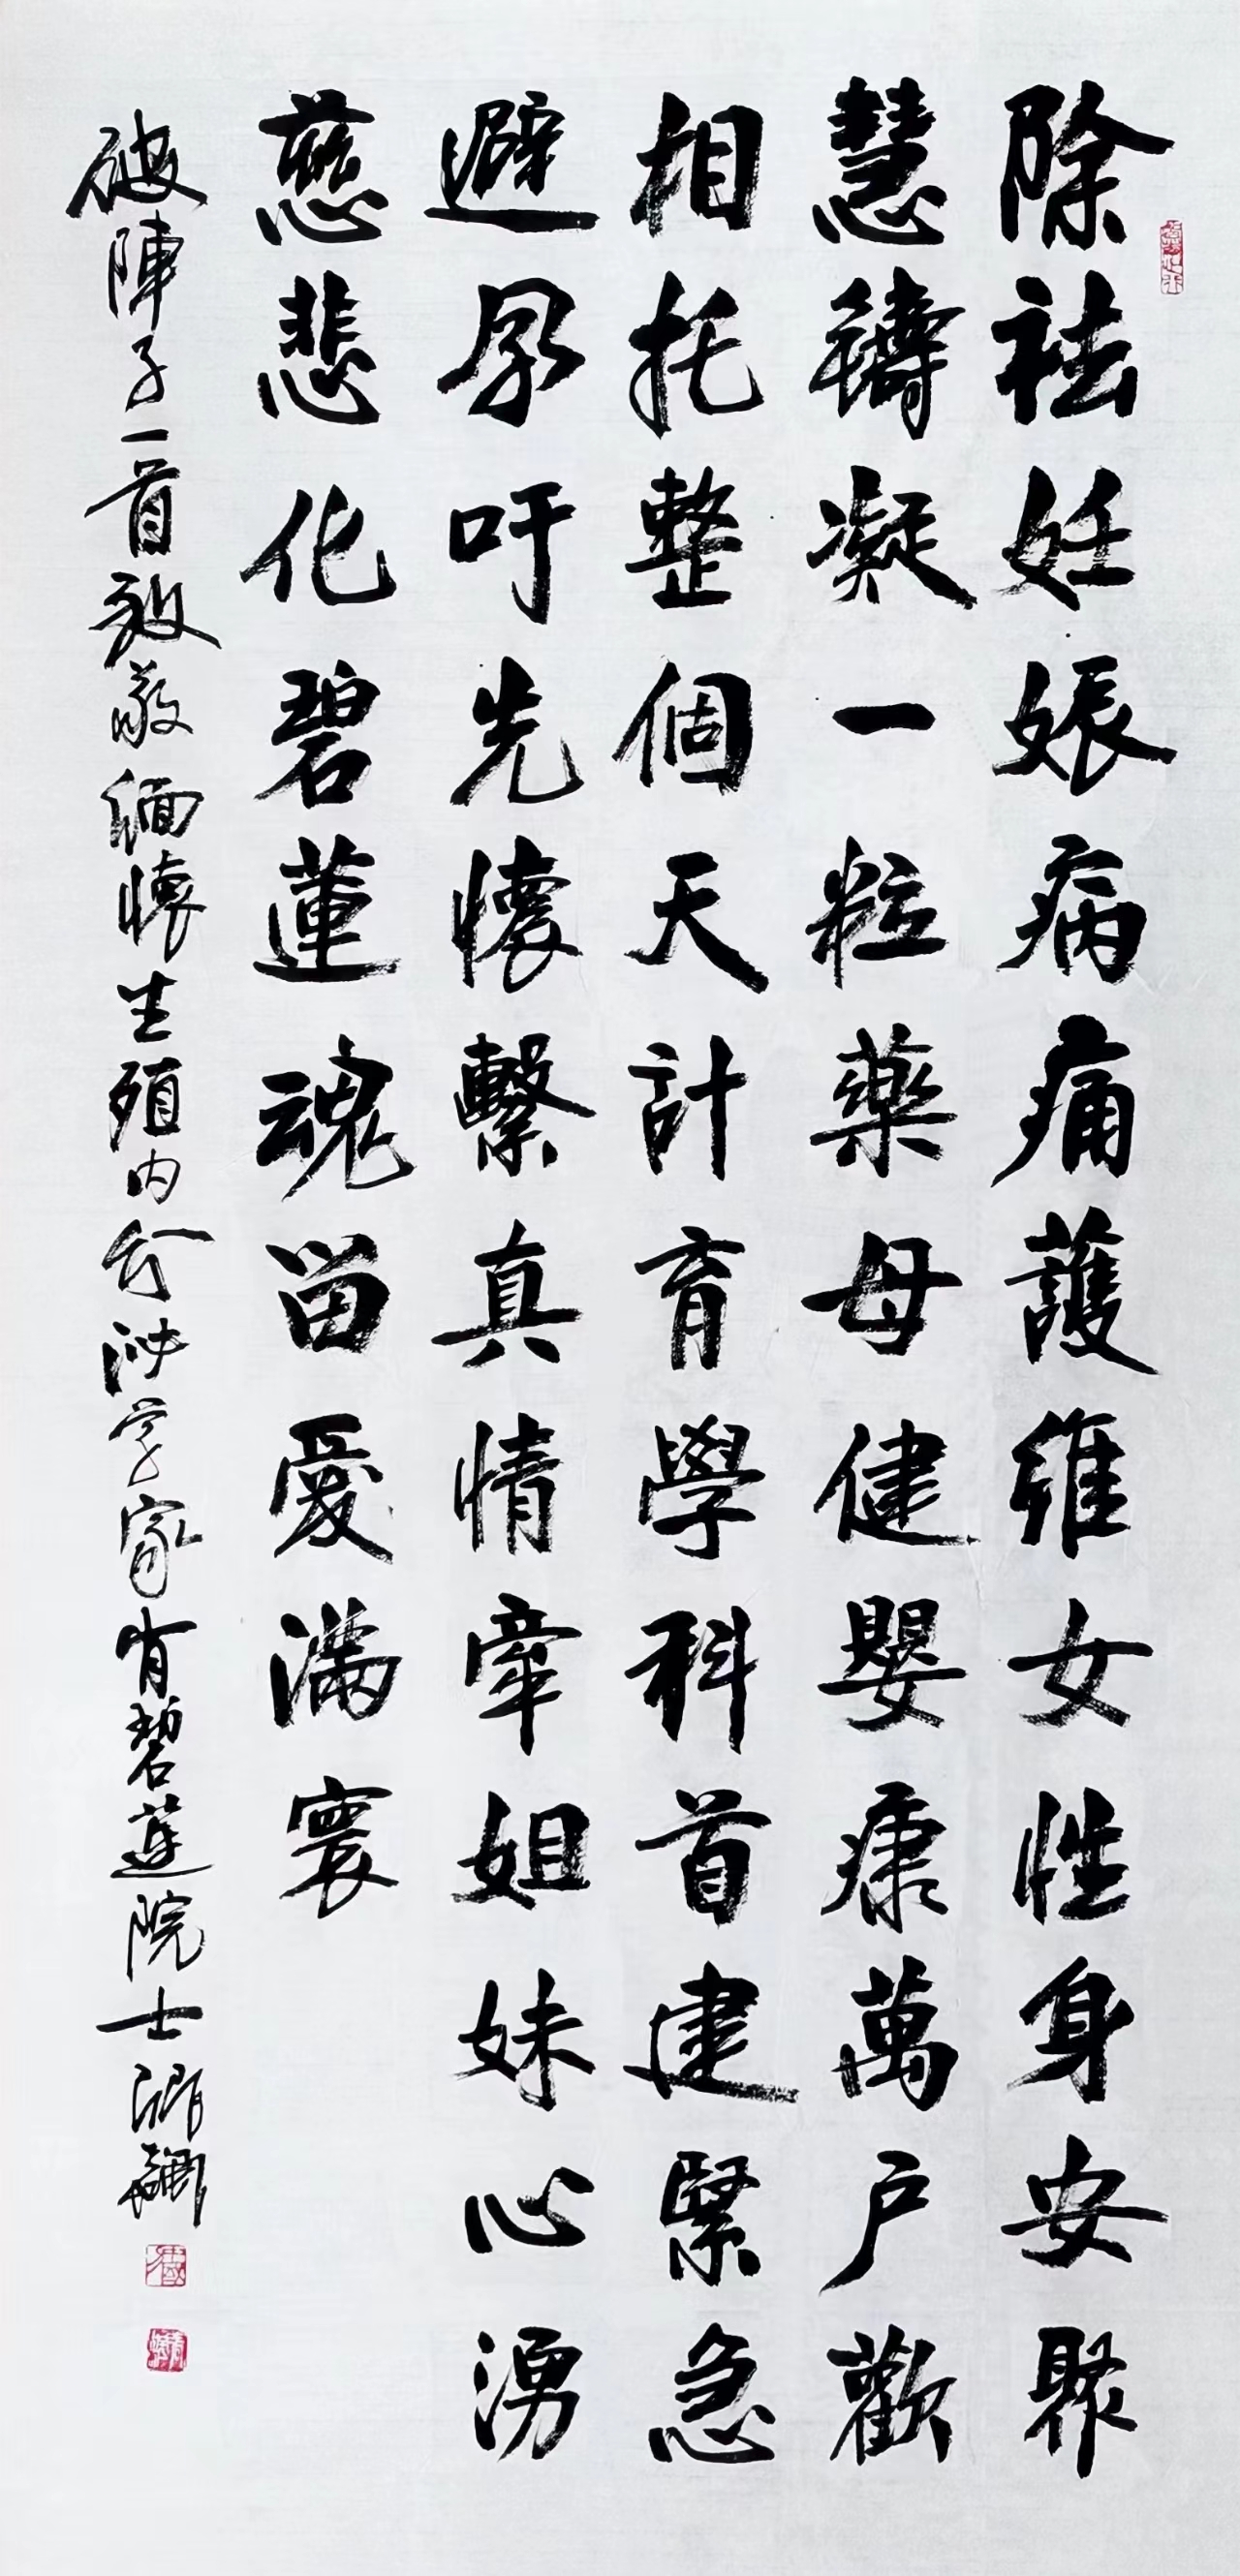 除祛妊娠病痛護維女性身安聚
慧禱凝一粒藥母健嬰康萬戶歡
相托整個天計育學科首建緊急
避孕吁先懷繫真情牽姐妹心湧
慈悲化碧蓮魂留愛滿寰
破陣子一首致敬緬懷生殖内分泌学家肖碧蓮院士